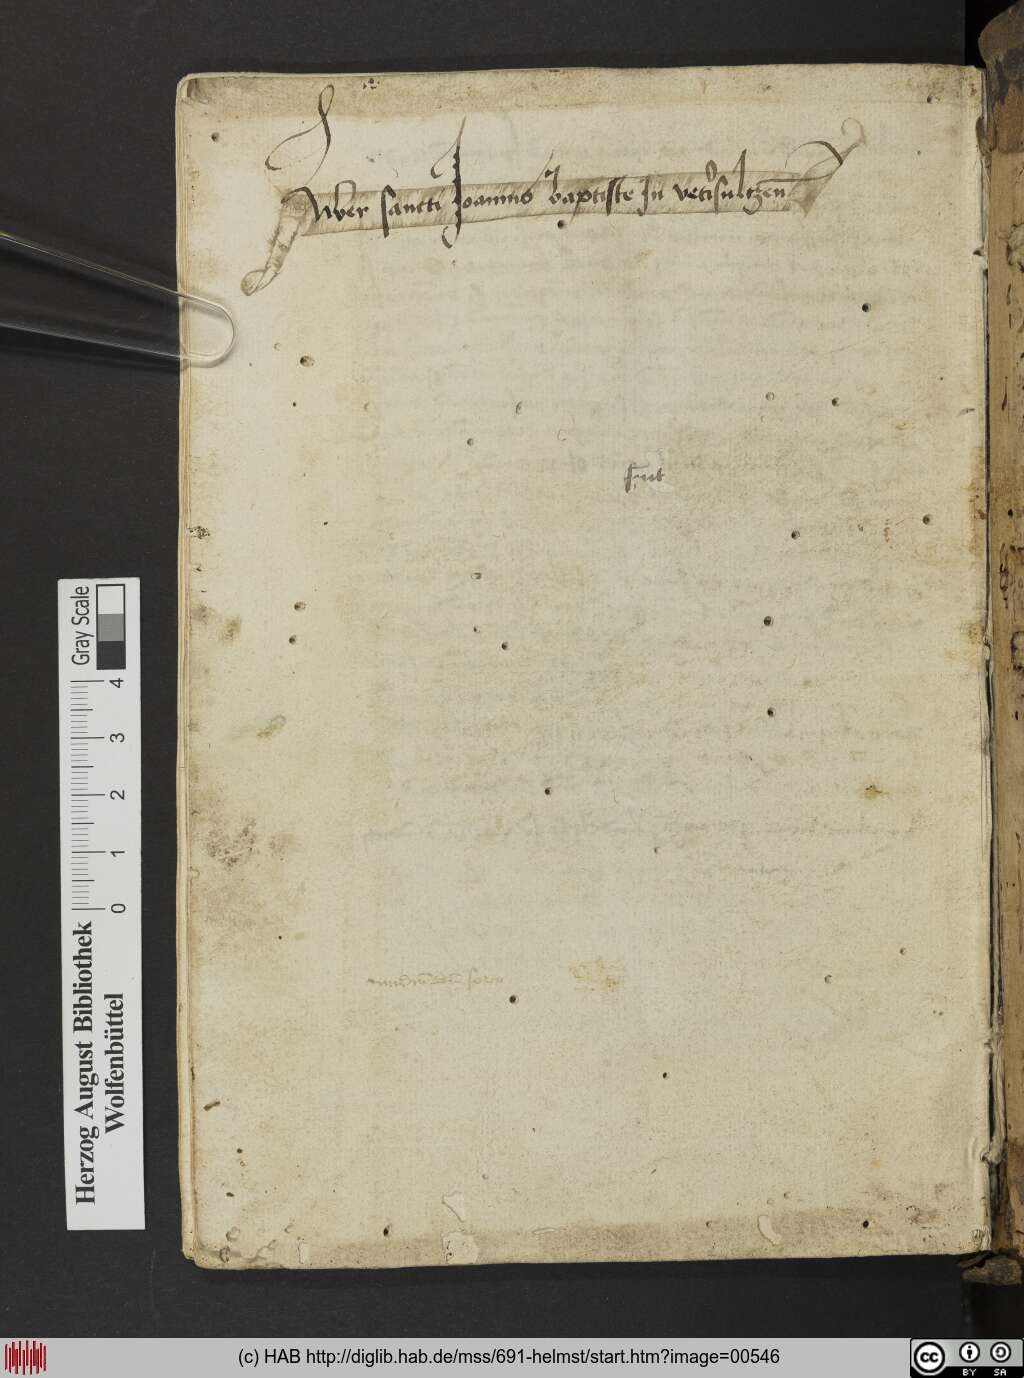 Liber sancti Joannis baptiste In veterisultzen
sunt
Gray Scale
4
3
2
1
0
Herzog August Bibliothek
Wolfenbüttel
(c) HAB http://diglib.hab.de/mss/691-helmst/start.htm?image=00546
cc
BY SA